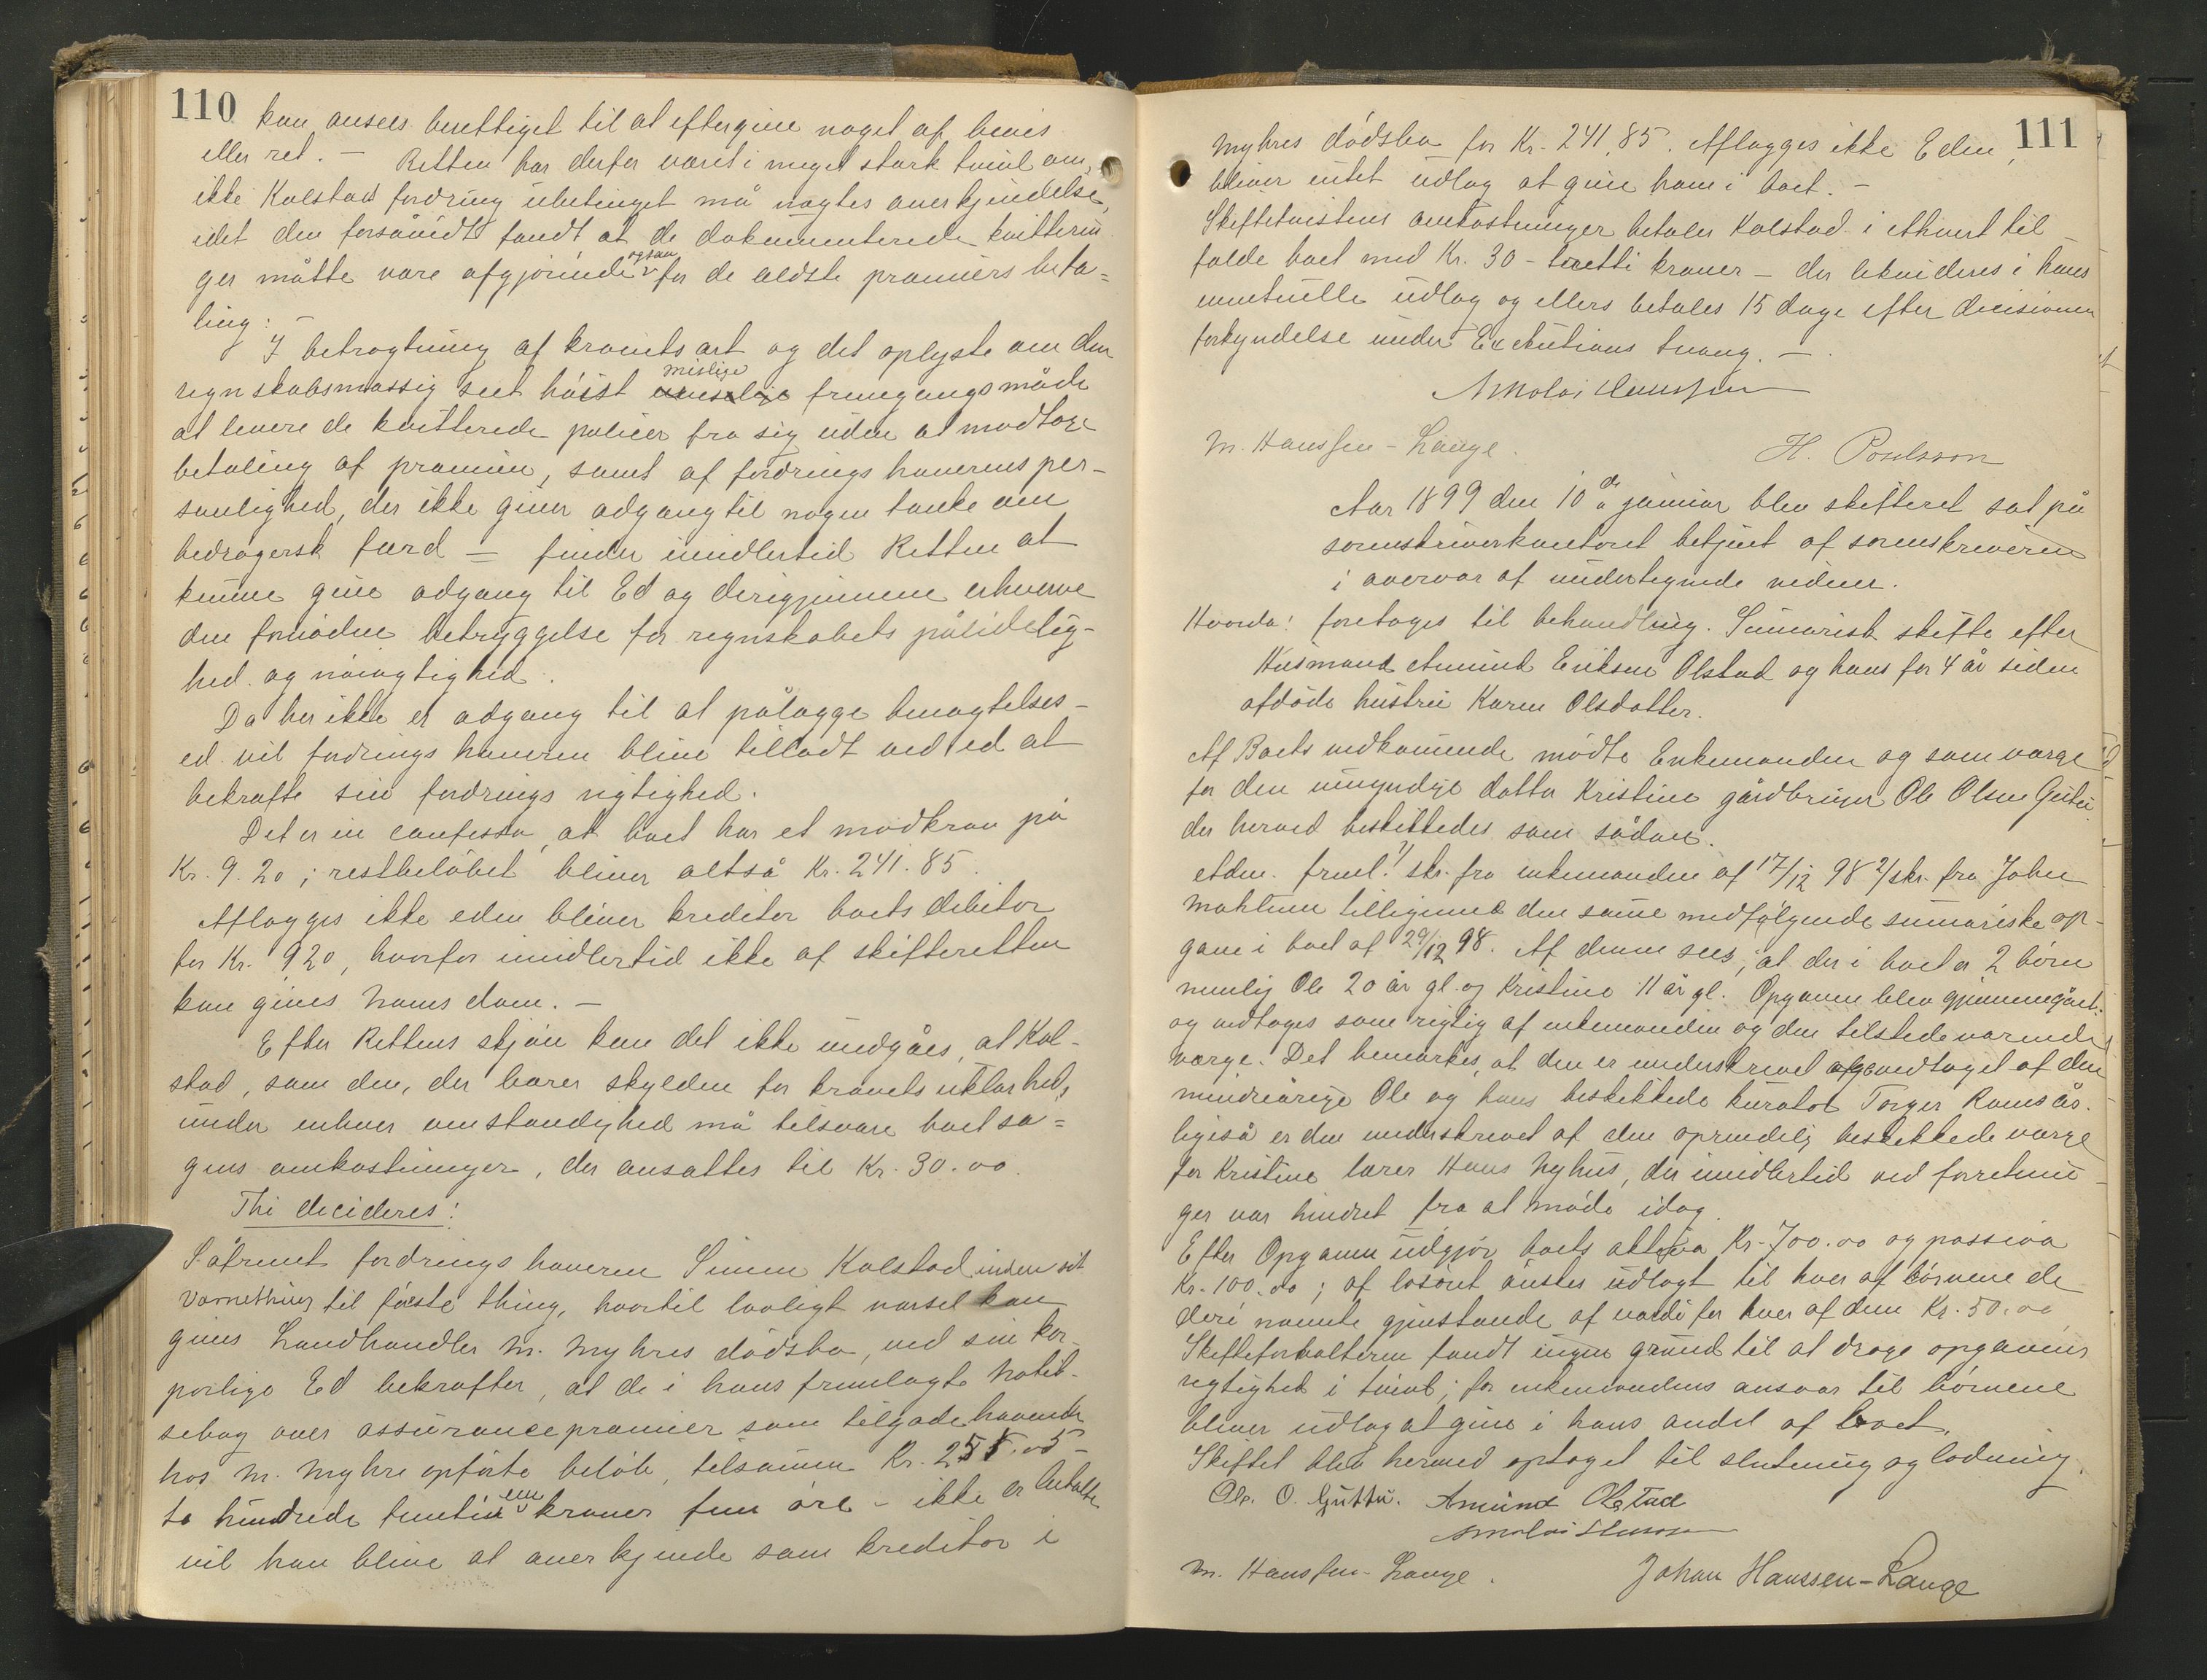 110
kan ansees berettiget til at eftergive noget af bevis
eller ret. — Retten har derfor været i meget stærk tvivl om,
ikke Kolstad fordring ubetinget må nægtes anerkjendelse,
idet den forsåvidt fandt at de dokumenterede kvitterin
ger måtte være afgjørende også for de ældste præmiers beta=
ling: —
I betragtning af kravets art og det oplyste om den
regnskabsmæssig seet høist mislige fremgangsmåde
at levere de kvitterede policer fra sig uden at modtage
betaling af præmien, samt af fordringshaverens per-
sonlighed, der ikke giver adgang til nogen tanke om
bedragersk færd — finder imidlertid Retten at
kunne give adgang til Ed og derigjennem erhverve
den fornødne betryggelse for regnskabets pålidelig-
hed og nøiagtighed.
Da her ikke er adgang til at pålægge benægtelses-
ed vil fordringshaveren blive tilladt ved ed at
bekræfte sin fordrings rigtighed.
Det er in confesso, at boet har et modkrav på
Kr. 9.20; restbeløbet bliver altså Kr. 241.85.
Aflægges ikke eden bliver kreditor boets debitor
for Kr. 9.20, hvorfor imidlertid ikke af skifteretten
kan gives ham dom. —
Efter Rettens skjøn kan det ikke undgåes, at Kol-
stad, som den, der bærer skylden for kravets uklarhed,
under enhver omstændighed må tilsvare boet sa=
gens omkostninger, der ansættes til Kr. 30.00.
Thi decideres:
Såfremt fordringshaveren Simen Kolstad inden sit
værnething til første thing, hvortil lovligt varsel kan
gives Landhandler M. Myhres dødsbo, ved sin kor-
porlige Ed bekræfter, at de i hans fremlagte Notit-
sebog over assurancepræmier som tilgodehavende
hos M. Myhre opførte beløb, tilsammen Kr. 251.05 —
to hundrede femti en kroner fem øre — ikke er betalte
vil han blive at anerkjende som kreditor i
111
Myhres dødsbo for Kr. 241.85. Aflægges ikke Eden,
bliver intet udlæg at give ham i boet. —
Skiftetvistens omkostninger betaler Kolstad i ethvert til
fælde boet med Kr. 30 — tretti kroner — der likvideres i hans
eventuelle udlæg og ellers betales 15 dage efter decisionens
forkyndelse under Executions tvang. —
Nikolai Hanssen
M. Hanssen-Lange. H. Poulsson
Aar 1899 den 10de januar blev skifteret sat på
sorenskriverkontoret betjent af sorenskriveren
i overvær af undertegnede vidner.
Hvorda: foretoges til behandling. Summarisk skifte efter
Husmand Amund Eriksen Olstad og hans for 4 år siden
afdøde hustru Karen Olsdatter.
Af Boets vedkommende mødte Enkemanden og som værge
for den umyndige datter Kristine gårdbruger Ole Olsen Guttu
der herved beskikkedes som sådan.
Adm. freml. 1/ skr. fra enkemanden af 17/12 98 2/ skr. fra Johan
Mohlum tilligemed den samme medfølgende summariske op-
gave i boet af 29/12 98. Af denne sees, at der i boet er 2 børn
nemlig Ole 20 år gl. og Kristine 11 år gl. Opgaven blev gjennemgået
og vedtoges som rigtig af enkemanden og den tilstedeværende
værge. Det bemærkes, at den er underskrevet og vedtaget af den
mindreårige Ole og hans beskikkede kurator Torger Ramsås.
ligeså er den underskrevet af den oprindelig beskikkede værge
for Kristine lærer Hans Nyhus, der imidlertid ved forretnin
ger var hindret fra at møde idag.
Efter Opgaven udgjør boets aktiva Kr. 700.00 og passiva
Kr. 100.00; af løsøret ønskes udlagt til hver af børnene de
deri nævnte gjenstande af værdi for hver af dem Kr. 50.00
Skifteforvalteren fandt ingen grund til at drage opgavens
rigtighed i tvivl; for enkemandens ansvar til børnene
bliver udlæg at give i hans andel af boet.
Skiftet blev hermed optaget til slutning og lodning.
Ole O. Guttu. Amund Olstad
Nikolai Hanssen
M. Hanssen-Lange. Johan Hanssen-Lange